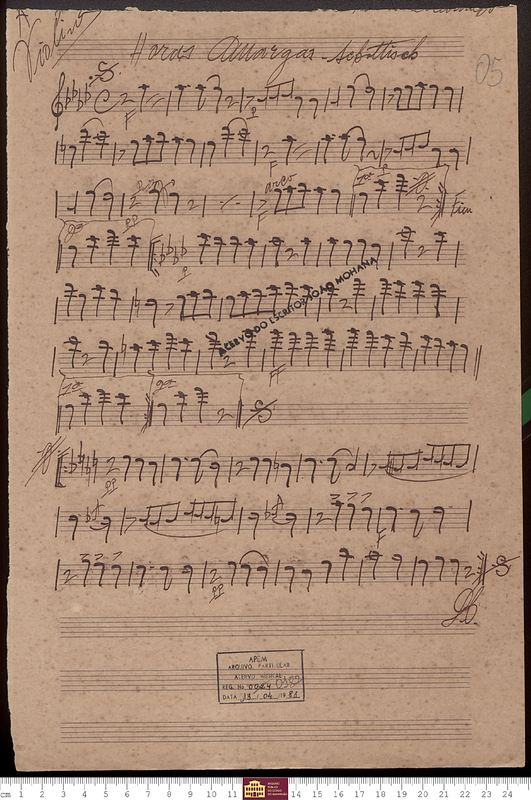 Violino
Horas Amargas Schottisch
05
F
F
arco
pp
F
Fim
1ª
2ª
p
ACERVO DO ESCRITOR JOÃO MOHANA
FF
1ª
2ª
pp
F
pp
APEM
ARQUIVO PARTICULAR
ACERVO MUSICAL
REG. No 0984
DATA 13 / 04 /
cm 1 2 3 4 5 6 7 8 9 10 11 12 13 14 15 16 17 18 19 20 21 22 23 24